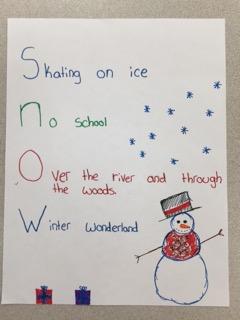 Skating on ice
no school
Over the river and through
the woods.
Winter wonderland